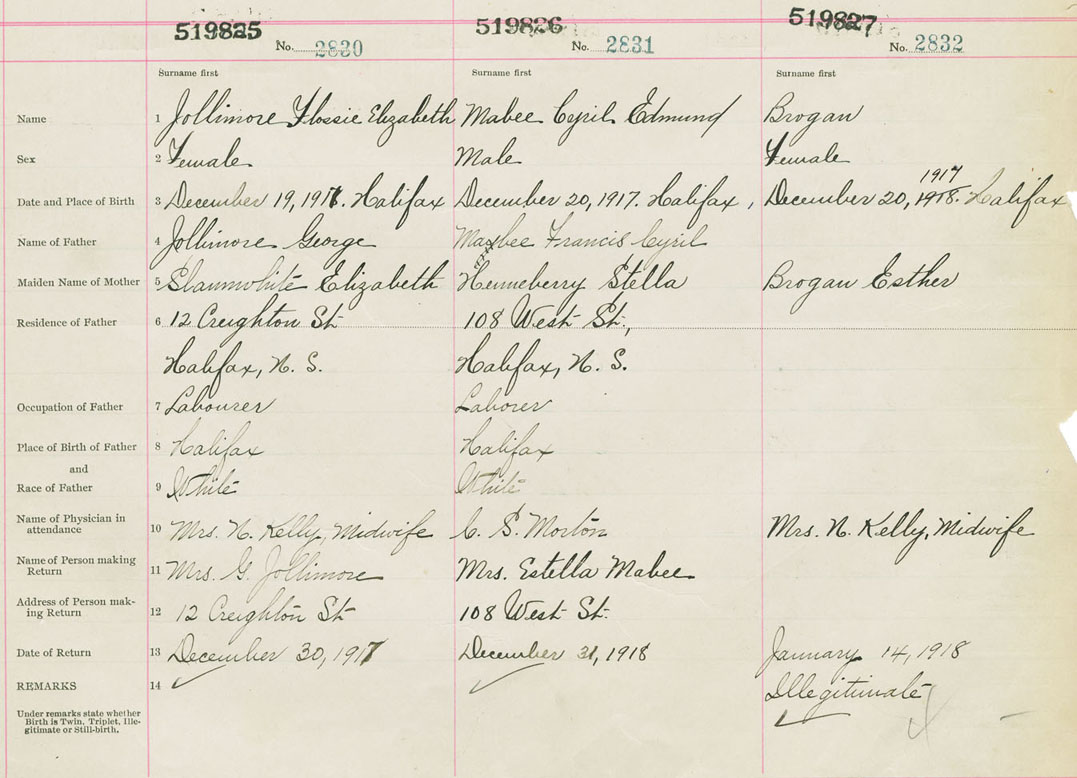 519825 519826 519827
No. 2830 No. 2831 No. 2832
Surname first Surname first Surname first
Name 1 Jollimore Flossie Elizabeth Mabee Cyril Edmund Brogan
Sex 2 Female Male Female
1917
Date and Place of Birth 3 December 19, 1917. Halifax December 20, 1917. Halifax, December 20, 1918. Halifax
Name of Father 4 Jollimore George Mabee Francis Cyril
Maiden Name of Mother 5 Slaunwhite Elizabeth Henneberry Stella Brogan Esther
Residence of Father 6 12 Creighton St 108 West St.,
Halifax, N. S. Halifax, N. S.
Occupation of Father 7 Labourer Laborer
Place of Birth of Father 8 Halifax Halifax
and
Race of Father 9 White White
Name of Physician in
attendance 10 Mrs. N. Kelly, Midwife C. S. Morton Mrs. N. Kelly, Midwife
Name of Person making
Return 11 Mrs. G. Jollimore Mrs. Estella Mabee
Address of Person mak-
ing Return 12 12 Creighton St 108 West St.
Date of Return 13 December 30, 1917 December 31, 1918 January 14, 1918
REMARKS 14 Illegitimate
Under remarks state whether
Birth is Twin, Triplet, Ille-
gitimate or Still-birth.